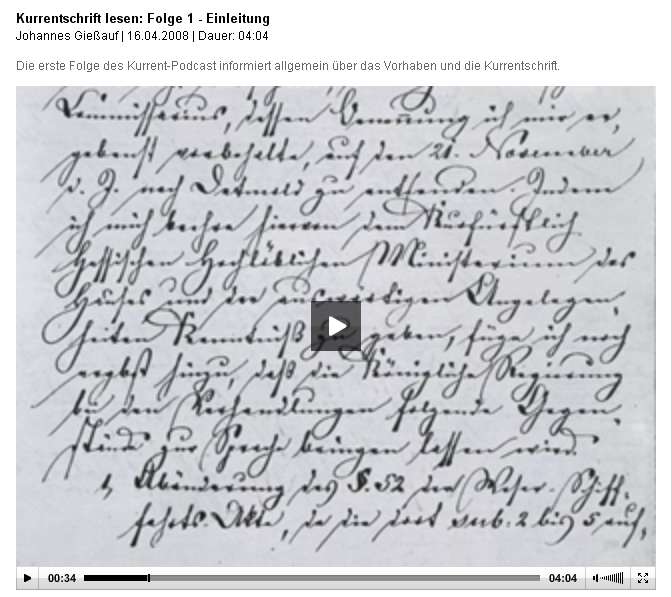 Kurrentschrift lesen: Folge 1 - Einleitung
Johannes Gießauf | 16.04.2008 | Dauer: 04:04
Die erste Folge des Kurrent-Podcast informiert allgemein über das Vorhaben und die Kurrentschrift.
Commissarius, dessen Benennung ich mir er,
gebenst vorbehalte, auf den 21. November
d. J. nach Detmold zu entsenden. Indem
ich mich beehre hiervon dem Kurfürstlich
Hessischen Hochlöblichen Ministerium des
Hauses und der auswärtigen Angelegen,
heiten Kenntniß zu geben, füge ich noch
ergbst hinzu, daß die Königliche Regierung
bei den Verhandlungen folgende Gegen,
stände zur Sprache bringen lassen wird.
1, Abänderung des §. 52 der Weser-Schiff,
fahrts-Akte, da die dort sub. 2 bis 5 auf,
00:34 04:04